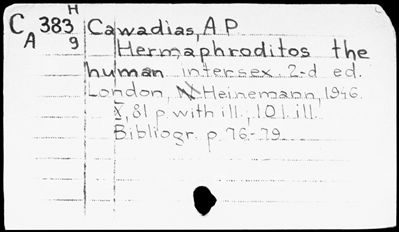 H
C 383 Cawadias, A P
A 9 Hermaphroditos the
human intersex 2-d ed.
London, Heinemann, 1946.
X, 81 p with ill., 101 ill.
Bibliogr. p. 76-79